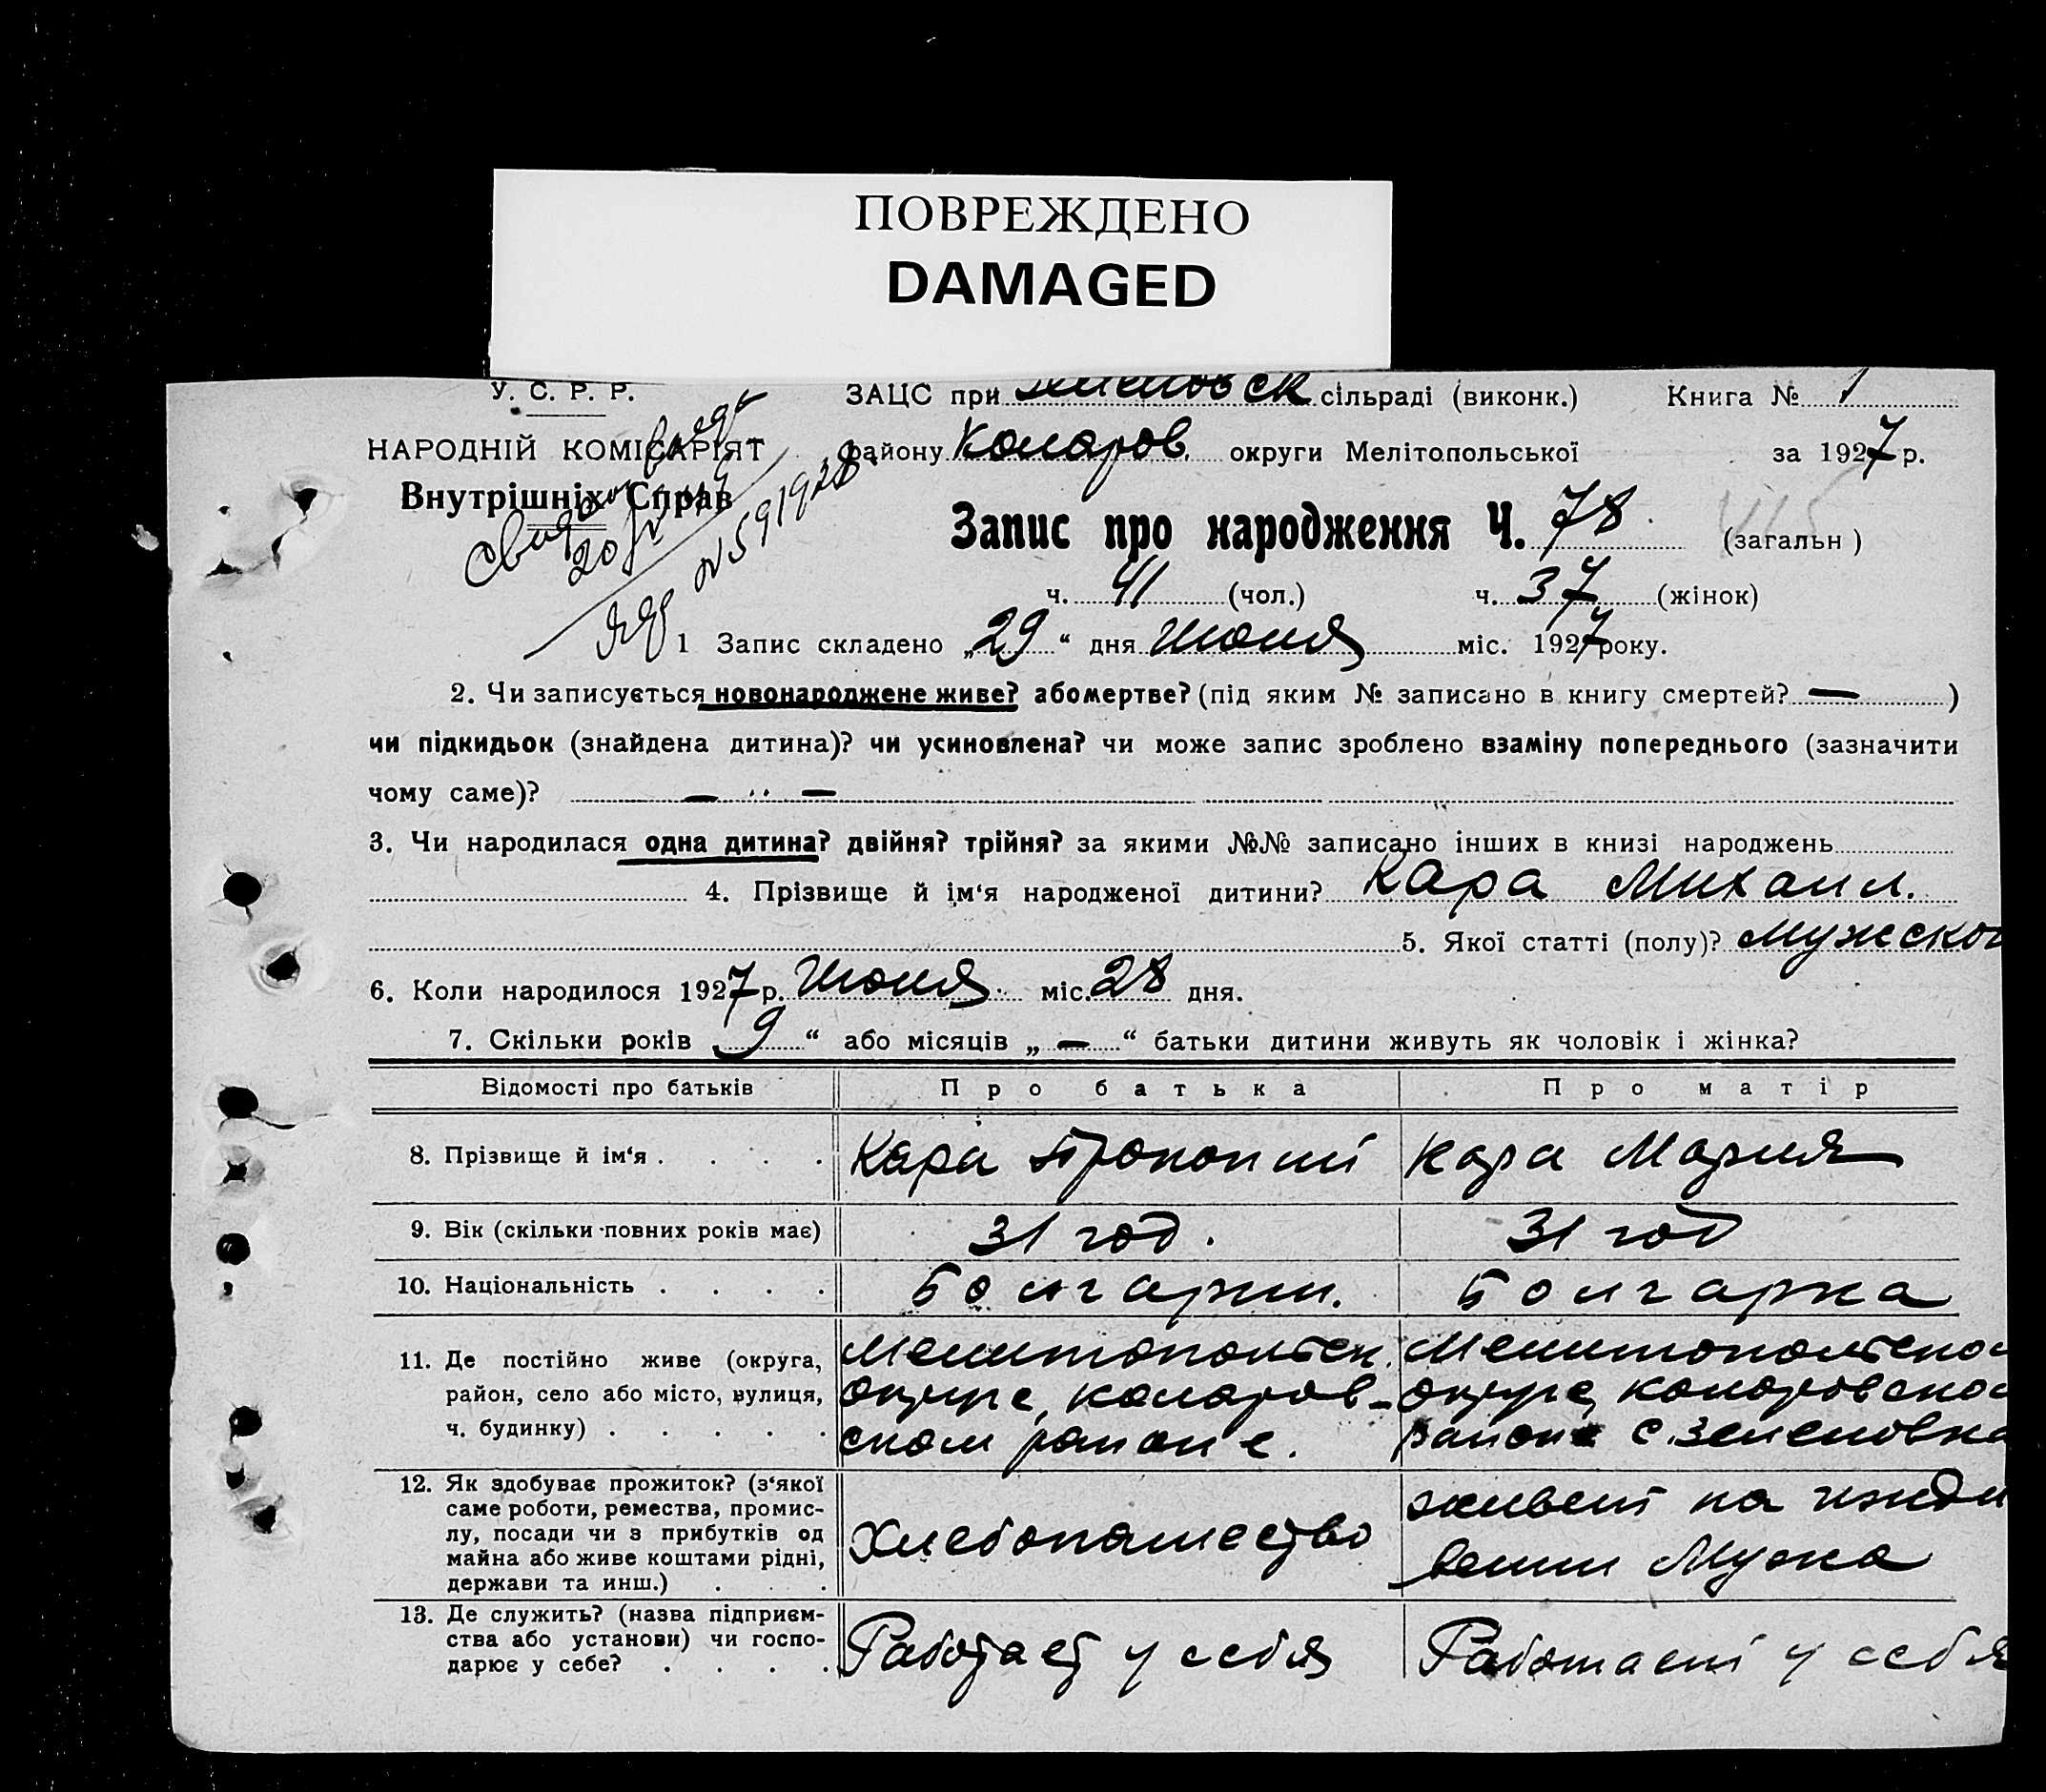 ПОВРЕЖДЕНО
DAMAGED
У. С. Р. Р.
НАРОДНІЙ КОМІСАРІЯТ
Внутрішніх Справ
ЗАЦС при сільраді (виконк.) Книга № 1
району Коларов. округи Мелітопольської за 1927 р.
Запис про народження Ч. 78 (загальн )
ч. 41 (чол.) ч. 37 (жінок)
1 Запис складено „29“ дня Июня міс. 1927 року.
2. Чи записується новонароджене живе? або мертве? (під яким № записано в книгу смертей? — )
чи підкидьок (знайдена дитина)? чи усиновлена? чи може запис зроблено взаміну попереднього (зазначити
чому саме)? — " —
3. Чи народилася одна дитина? двійня? трійня? за якими №№ записано інших в книзі народжень
4. Прізвище й ім‘я народженої дитини? Кара Михаил.
5. Якої статті (полу)? Мужско
6. Коли народилося 1927 р. Июня міс. 28 дня.
7. Скільки років „9“ або місяців „—“ батьки дитини живуть як чоловік і жінка?
Відомості про батьків Про батька Про матір
8. Прізвище й ім‘я . . . . Кара Прокопий Кара Мария
9. Вік (скільки повних років має) 31 год. 31 год
10. Національність . . . . Болгарин. Болгарка
11. Де постійно живе (округа,
район, село або місто, вулиця,
ч. будинку) . . . . .
Мелитопольск.
округе, коларов-
ском районе.
Мелитопольско
округе коларовско
районе с. Зеленовка
12. Як здобуває прожиток? (з‘якої
саме роботи, ремества, промис-
лу, посади чи з прибутків од
майна або живе коштами рідні,
держави та инш.) . . .
Хлебопашество
живет на ижди
вении Мужа
13. Де служить? (назва підприєм-
ства або установи) чи госпо-
дарює у себе? . . . .
Работает у себя
Работает у себя